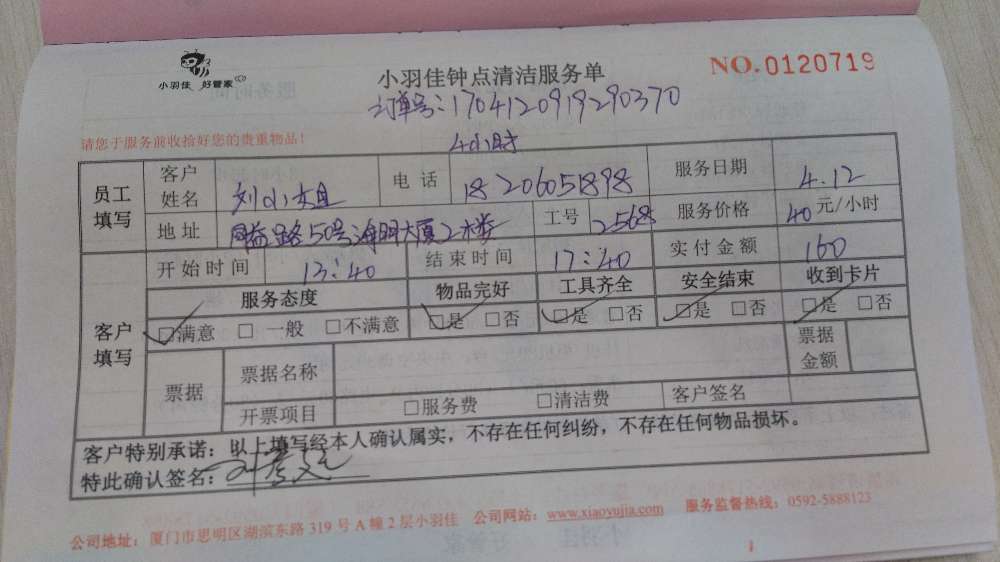 小羽佳 好管家
小羽佳钟点清洁服务单
NO.0120719
订单号:1704120919290370
请您于服务前收拾好您的贵重物品!
4小时
员工填写 客户姓名 刘小姐 电话 18206051898 服务日期 4.12
地址 路50号海明大厦2楼 工号 2568 服务价格 40元/小时
开始时间 13:40 结束时间 17:40 实付金额 160
客户填写 服务态度 物品完好 工具齐全 安全结束 收到卡片
☑满意 □一般 □不满意 ☑是 □否 ☑是 □否 ☑是 □否 ☑是 □否
票据 票据名称 票据金额
开票项目 □服务费 □清洁费 客户签名
客户特别承诺:以上填写经本人确认属实,不存在任何纠纷,不存在任何物品损坏。
特此确认签名:
公司地址:厦门市思明区湖滨东路319号A幢2层小羽佳 公司网站:www.xiaoyujia.com 服务监督热线:0592-5888123